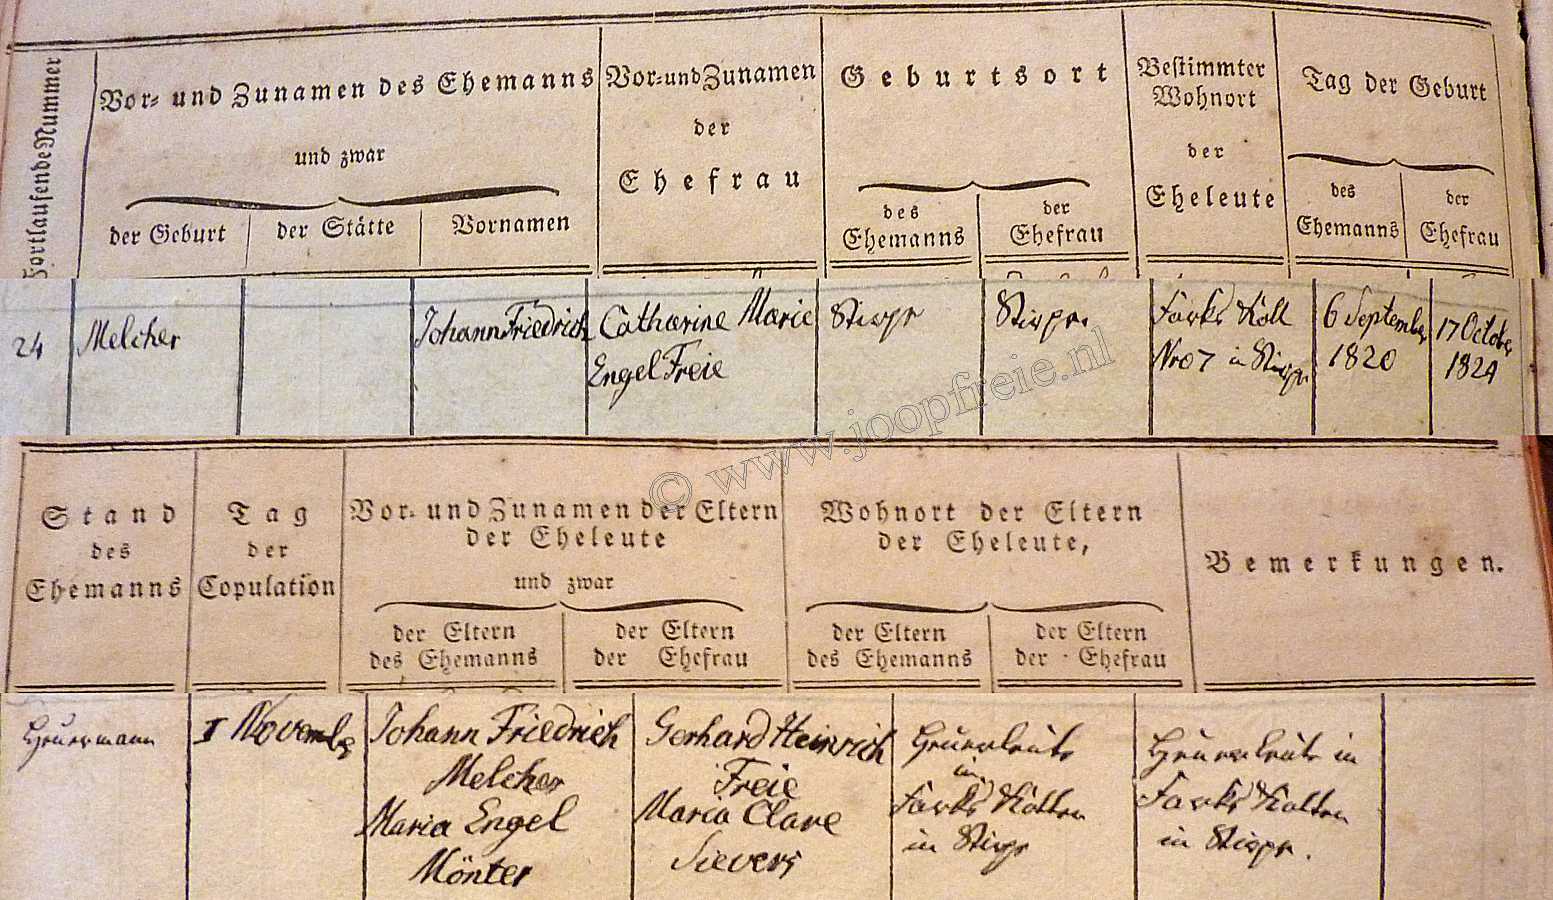 Fortlaufende Nummer
Vor- und Zunamen des Ehemanns
und zwar
der Geburt
der Stätte
Vornamen
Vor- und Zunamen
der
Ehefrau
Geburtsort
des
Ehemanns
der
Ehefrau
Bestimmter
Wohnort
der
Eheleute
Tag der Geburt
des
Ehemanns
der
Ehefrau
24
Melcher
Johann Friedrich
Catharine Marie
Engel Freie
Stirpe
Stirpe.
Farks Kott
Nro 7 in Stirpe
6 September
1820
17 October
1824
© www.joopfreie.nl
Stand
des
Ehemanns
Tag
der
Copulation
Vor- und Zunamen der Eltern
der Eheleute
und zwar
der Eltern
des Ehemanns
der Eltern
der Ehefrau
Wohnort der Eltern
der Eheleute,
der Eltern
des Ehemanns
der Eltern
der Ehefrau
Bemerkungen.
Heuermann
1 Novembr
Johann Friedrich
Melcher
Maria Engel
Mönter
Gerhard Heinrich
Freie
Maria Clare
Sievers
Heuerleute
in
Farks Kotten
in Stirpe
Heuerleute in
Farks Kotten
in Stirpe.